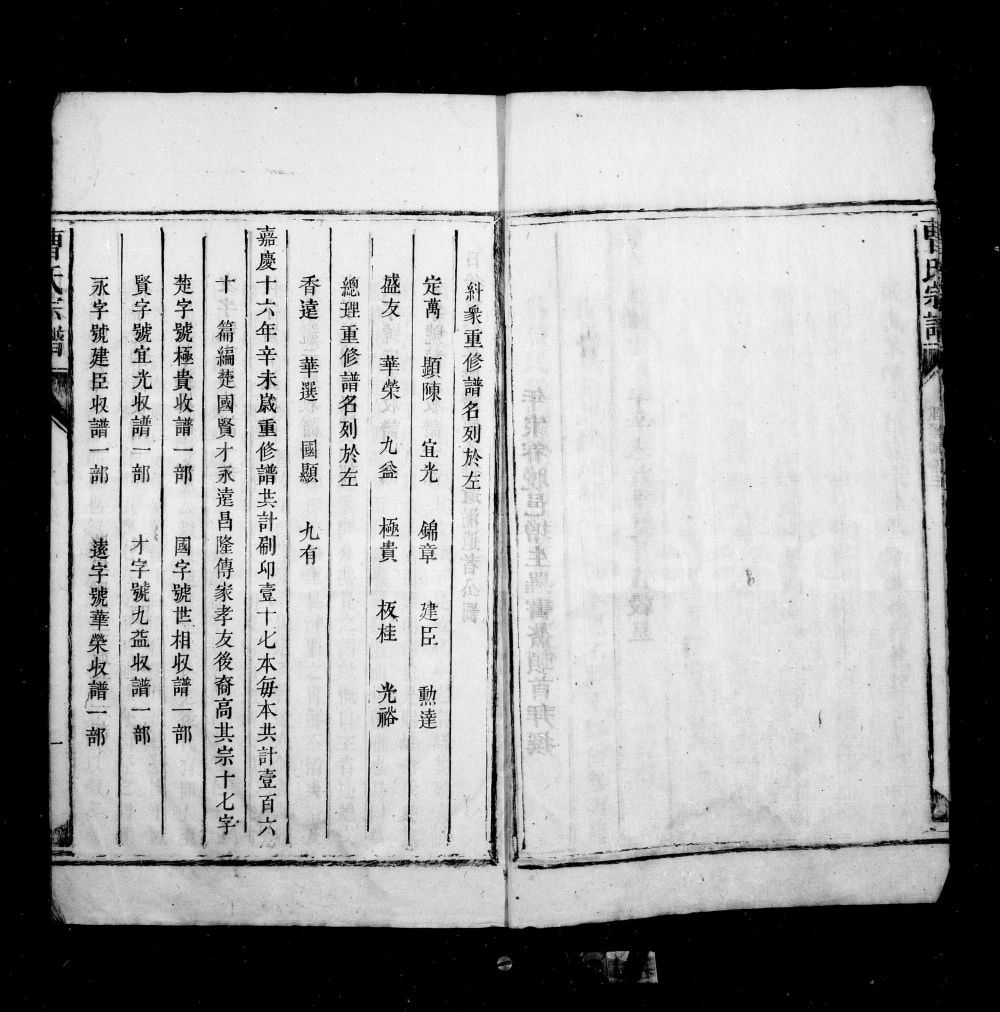 曹氏宗譜
糾衆重修譜名列於左
定萬 顯陳 宜光 錦章 建臣 勳達
盛友 華榮 九益 極貴 板桂 光裕
總理重修譜名列於左
香遠 華選 國顯 九有
嘉慶十六年辛未歲重修譜共計刷印壹十七本每本共計壹百六
十篇編楚國賢才永遠昌隆傳家孝友後裔高其宗十七字
楚字號極貴收譜一部 國字號世相收譜一部
賢字號宜光收譜一部 才字號九益收譜一部
永字號建臣收譜一部 遠字號華榮收譜一部
曹氏宗譜
一